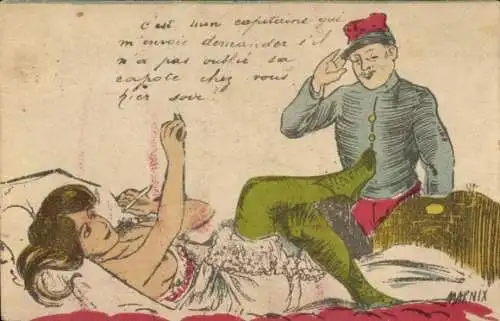 C'est mon capitaine qui
m'envoie demander s'il
n'a pas oublié sa
capote chez vous
hier soir!
MARNIX